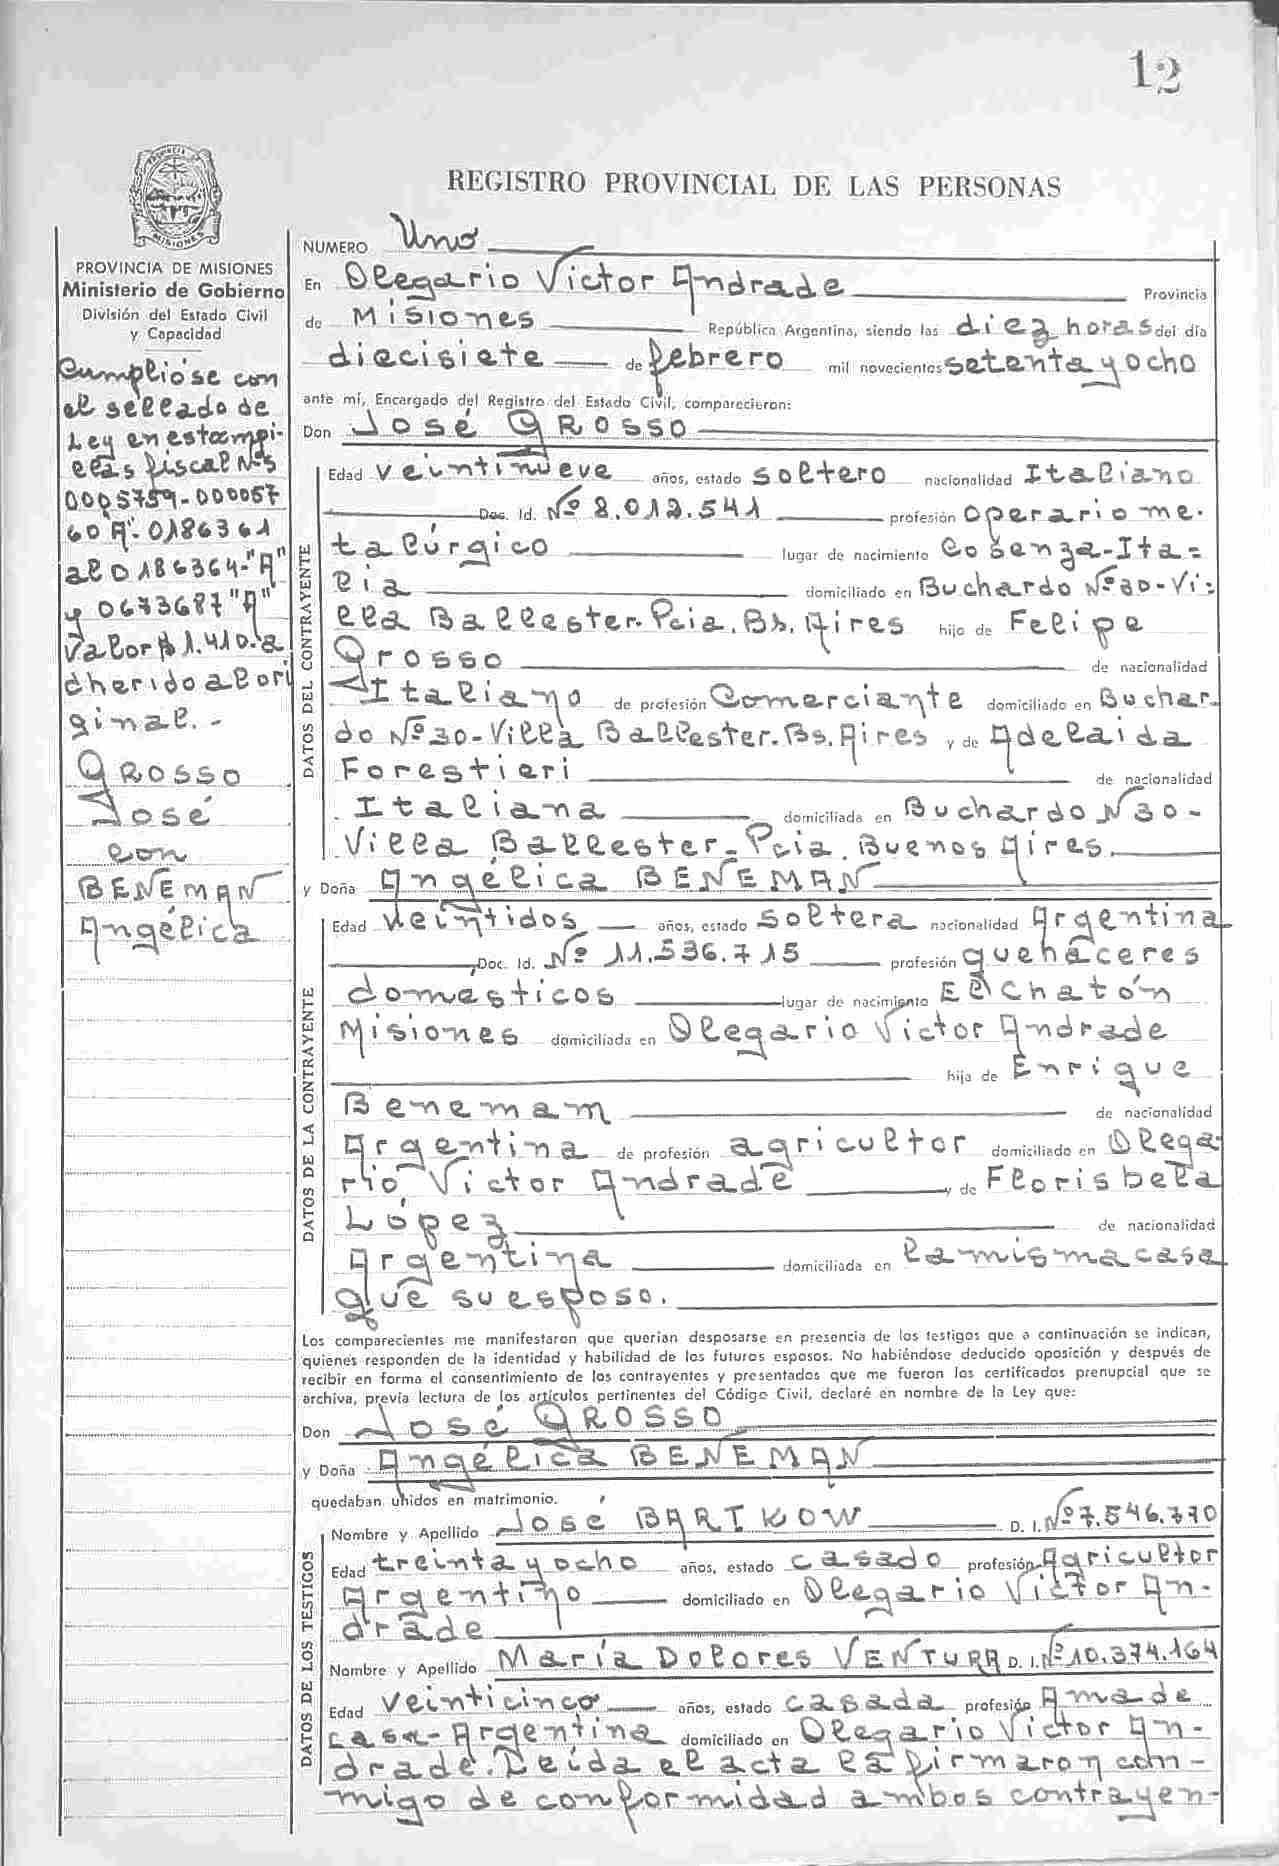 12
REGISTRO PROVINCIAL DE LAS PERSONAS
PROVINCIA DE MISIONES
Ministerio de Gobierno
División del Estado Civil
y Capacidad
Cumplióse con
el sellado de
Ley en estampi-
llas fiscal Nos
0005759-000057
60 "A". 0186361
al 0186364-"A"
y 0673687 "A"
Valor $ 1.410.-a
dherido al ori
ginal. -
GROSSO
José
con
BENEMAN
Angélica
NUMERO Uno
En Olegario Victor Andrade Provincia
de Misiones República Argentina, siendo las diez horas del día
diecisiete de febrero mil novecientos setenta y ocho
ante mí, Encargado del Registro del Estado Civil, comparecieron:
Don José GROSSO
DATOS DEL CONTRAYENTE
Edad veintinueve años, estado soltero nacionalidad Italiano
Doc. Id. Nº 8.012.541 profesión Operario me-
talúrgico lugar de nacimiento Cosenza-Ita=
lia domiciliado en Buchardo Nº 30-Vi-
lla Ballester. Pcia. Bs. Aires hijo de Felipe
Grosso de nacionalidad
Italiano de profesión Comerciante domiciliado en Buchar-
do Nº 30-Villa Ballester. Bs. Aires y de Adelaida
Forestieri de nacionalidad
Italiana domiciliada en Buchardo Nº 30-
Villa Ballester-Pcia. Buenos Aires.
y Doña Angélica BENEMAN
DATOS DE LA CONTRAYENTE
Edad Veintidos años, estado Soltera nacionalidad Argentina
Doc. Id. Nº 11.536.715 profesión quehaceres
domesticos lugar de nacimiento El Chatón
Misiones domiciliada en Olegario Victor Andrade
hija de Enrique
Benemam de nacionalidad
Argentina de profesión agricultor domiciliado en Olega-
rio Victor Andrade y de Florisbela
López de nacionalidad
Argentina domiciliada en la misma casa
que su esposo.
Los comparecientes me manifestaron que querian desposarse en presencia de los testigos que a continuación se indican,
quienes responden de la identidad y habilidad de los futuros esposos. No habiéndose deducido oposición y después de
recibir en forma el consentimiento de los contrayentes y presentados que me fueron los certificados prenupcial que se
archiva, previa lectura de los artículos pertinentes del Código Civil, declaré en nombre de la Ley que:
Don José GROSSO
y Doña Angélica BENEMAN
quedaban unidos en matrimonio.
DATOS DE LOS TESTIGOS
Nombre y Apellido José BARTKOW D. I. Nº 7.546.770
Edad treinta y ocho años, estado casado profesión Agricultor
Argentino domiciliado en Olegario Victor An-
drade
Nombre y Apellido María Dolores VENTURA D. I. Nº 10.374.164
Edad Veinticinco años, estado casada profesión Ama de
casa-Argentina domiciliado en Olegario Victor An-
drade. Leída el acta la firmaron con-
migo de conformidad ambos contrayen-